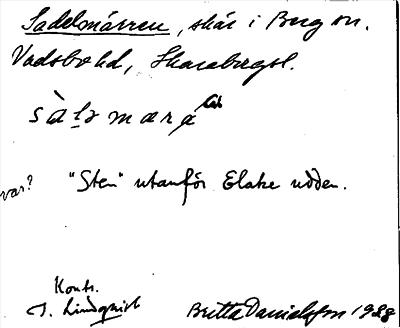 Sadelmärren, skär i Berg sn.
Vadsbo hd, Skarabergsl.
sàlmæra
var? "Sten" utanför Elake udden.
Kontr.
I. Lindqvist Britta Danielsson 1928